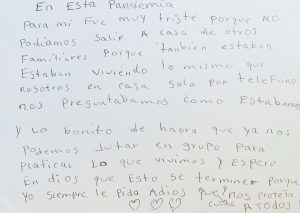 En Esta Pandemia
Para mi Fue muy triste porque no
Podiamos Salir A casa de otros
Familiares Porque tanbien estaban
Estaban Viviendo lo mismo que
nosotros en casa solo por telefono
nos Preguntabamos como Estabamos
y Lo bonito de haora que ya nos
Podemos Jutar en grupo para
Platicar Lo que vivimos y Espero
En dios que Esto se termine porque
Yo Siempre le Pido Adios que nos proteja
cuide A TODOS